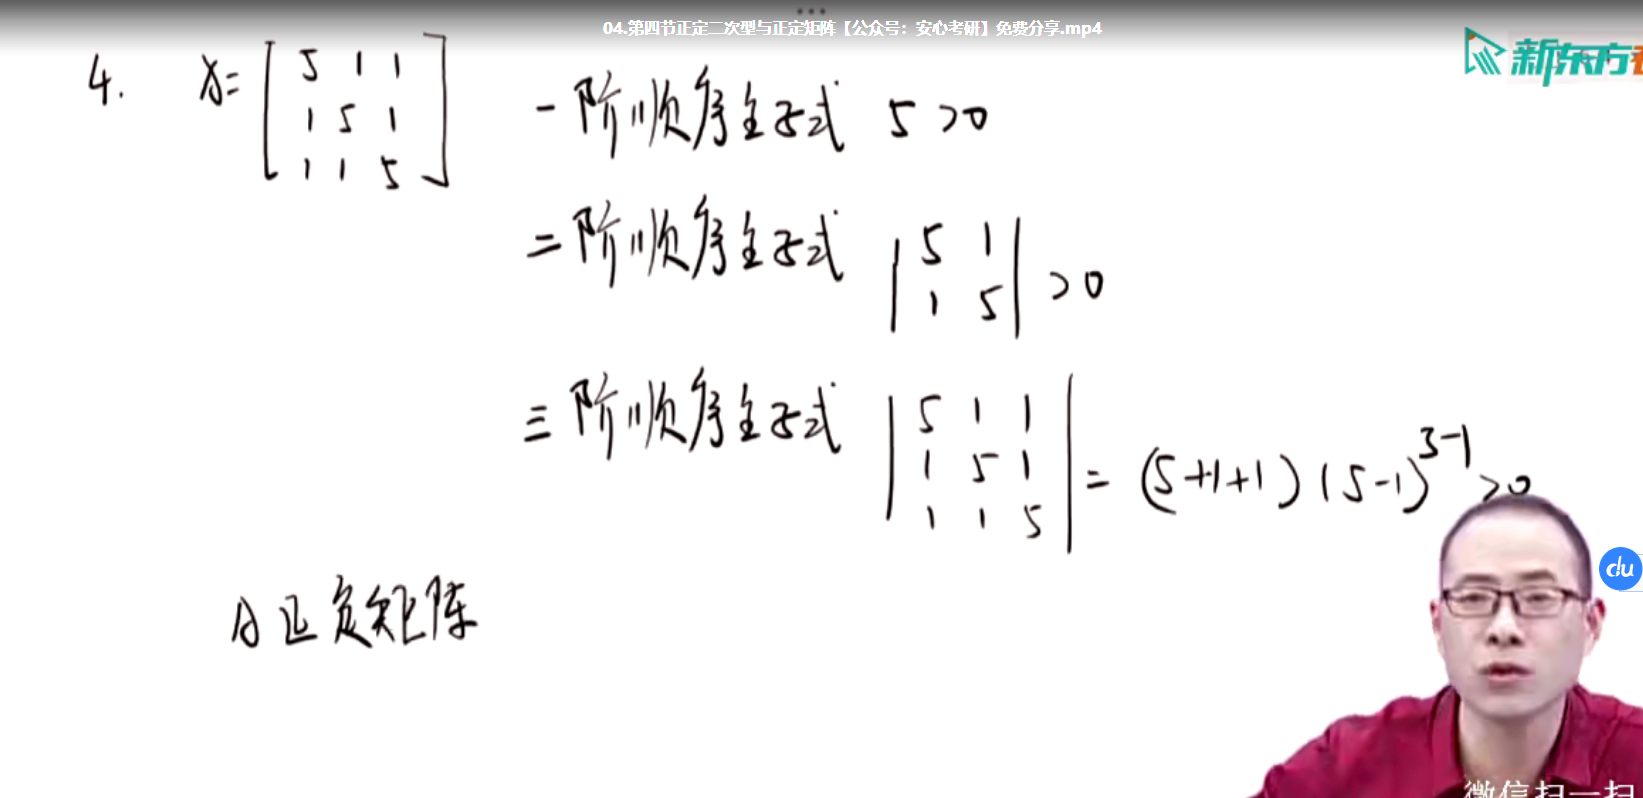 04.第四节正定二次型与正定矩阵【公众号：安心考研】免费分享.mp4
新东方
4. A= [5 1 1 一阶顺序主子式 5 >0
1 5 1
1 1 5]
二阶顺序主子式 |5 1
1 5| >0
三阶顺序主子式 |5 1 1
1 5 1
1 1 5| = (5+1+1)(5-1)^{3-1} >0
A正定矩阵
du
微信扫一扫